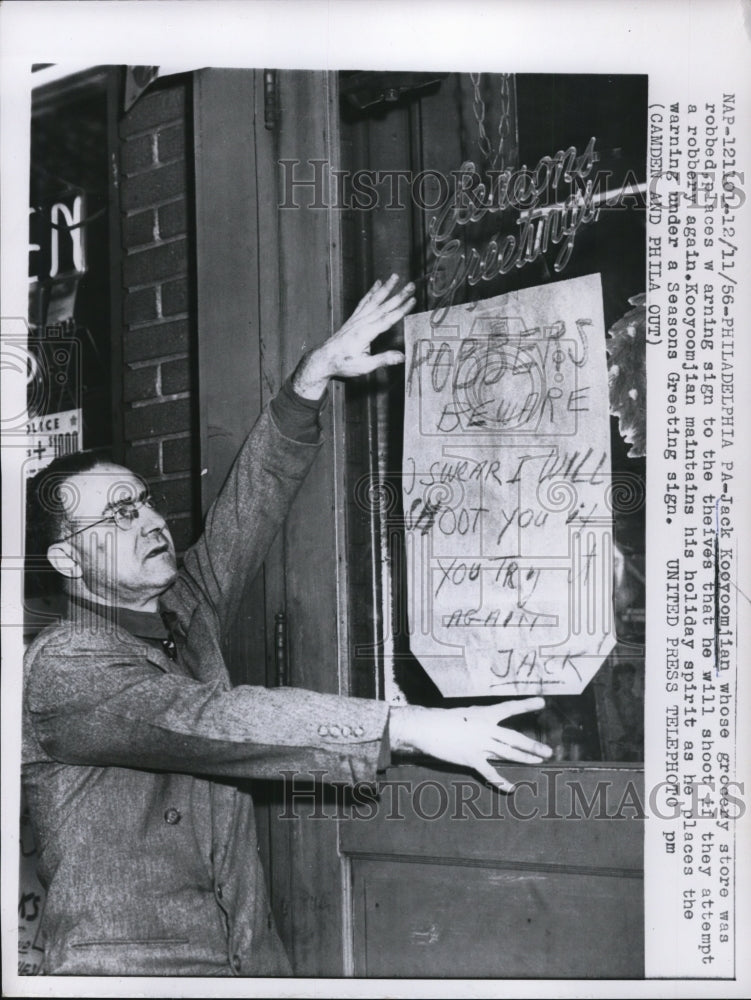 Seasons
Greetings
ROBBERS
BEWARE
I SWEAR I WILL
SHOOT YOU if
YOU TRY it
AGAIN
JACK
EN
LICE
+ $1000
NAP-121104-12/11/56-PHILADELPHIA PA-Jack Kooyoomjian whose grocery store was
robbed,places w arning sign to the theives that he will shoot if they attempt
a robbery again.Kooyoomjian maintains his holiday spirit as he places the
warning under a Seasons Greeting sign. UNITED PRESS TELEPHOTO pm
(CAMDEN AND PHILA OUT)
HISTORIC IMAGES
HISTORIC IMAGES